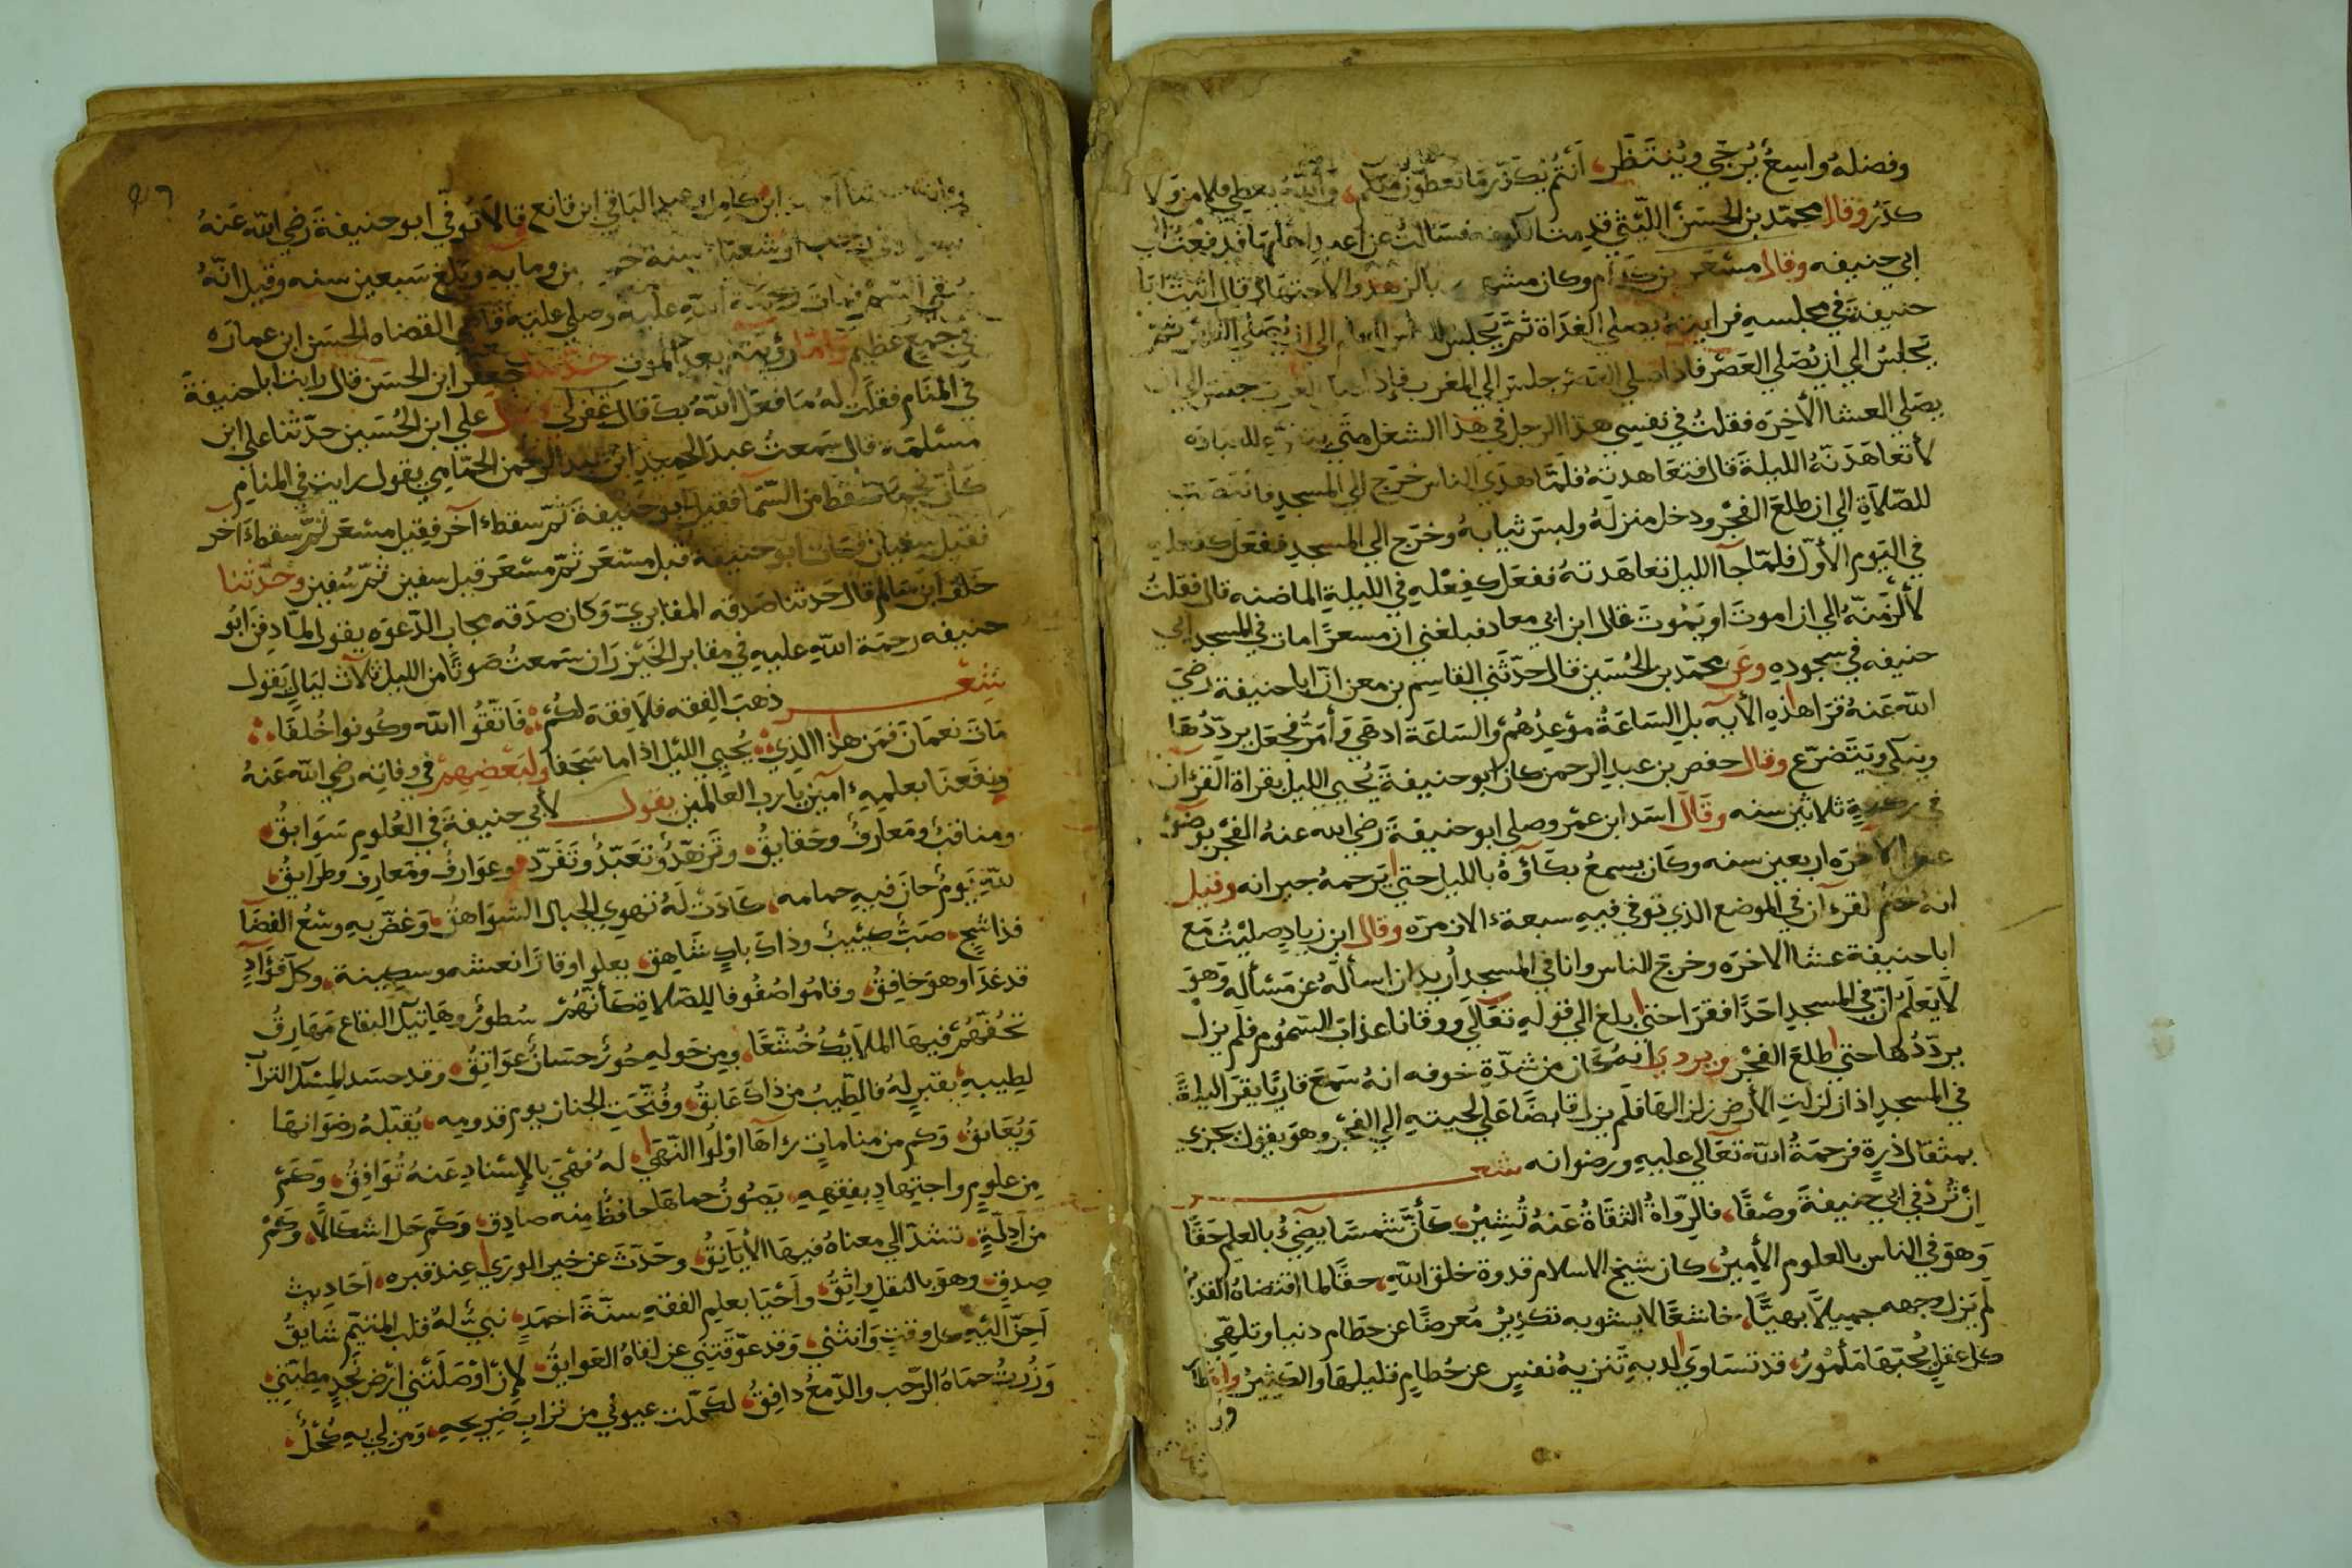 وفضله واسع يرجى وينتظر أنتم يكدر ما تعطون منكم والله يعطي فلا من ولا
كدر وقال محمد بن الحسن الليثي قدمت الكوفه فسالت عن اعبد اهلها فدفعت الى
ابي حنيفه وقال مسعر بن كدام وكان مشهورا بالزهد والاجتهاد قال اتيت ابا
حنيفة في مجلسه فرايته يصلي الغداة ثم يجلس للناس الى ان يصلي الظهر ثم
يجلس الي ان يصلي العصر فاذا صلي العصر جلس الي المغرب فإذا صلى المغرب جلس الي ان
يصلي العشا الأخرة فقلت في نفسي هذا الرجل في هذا الشغل متي يتفرغ للعباده
لأتعاهدنه الليلة قال فتعاهدته فلما هدي الناس خرج الي المسجد فانتصب
للصلاة الي ان طلع الفجر ودخل منزله ولبس ثيابه وخرج الي المسجد ففعل كفعله
في اليوم الأول فلما جآ الليل تعاهدته ففعل كفعله في الليلة الماضيه قال فقلت
لألزمنه الي ان اموت او يموت قال ابن ابي معاد فبلغني ان مسعرا مات في مسجد ابي
حنيفه في سجوده وعن محمد بن الحسين قال حدثني القاسم بن معن ان ابا حنيفة رضي
الله عنه قرا هذه الأيه بل الساعة موعدهم والساعة ادهي وأمر فجعل يرددها
ويبكي ويتضرع وقال حفص بن عبد الرحمن كان ابو حنيفة يحيي الليل بقراة القرآن
في ركعة ثلاثين سنه وقال اسد ابن عمر وصلي ابو حنيفة رضي الله عنه الفجر بوضوء
عشا الاخرة اربعين سنه وكان يسمع بكاؤه بالليل حتي يرحمه جيرانه وقيل
انه ختم القرءآن في الموضع الذي توفي فيه سبعة ءالاف مرة وقال ابن زياد صليت مع
ابا حنيفة عشا الاخره وخرج الناس وانا في المسجد أريد ان اسأله عن مسئاله وهو
لا يعلم ان في المسجد احدا فقرا حتي بلغ الي قوله تعالي ووقانا عذاب السموم فلم يزل
يرددها حتي طلع الفجر ويروي انه كان من شدة خوفه انه سمع قاريا يقرا ليلة
في المسجد اذا زلزلت الأرض زلزالها فلم يزل قابضا علي لحيته الي الفجر وهو يقول نجزى
بمثقال ذرة فرحمة الله تعالي عليه ورضوانه شعر
ان ترد في ابي حنيفة وصفا فالرواة الثقاة عنه تشير كأن شمسا يضيء بالعلم حقا
وهو في الناس بالعلوم الأمير كان شيخ الاسلام قدوة خلق الله حقا لما اقتضاه القدير
لم يزل وجهه جميلا بهيا خاشعا لا يشوبه تكدير معرضا عن حطام دنيا وتلهي
كل عقل بحبها مأمور قد تساوي لديه تنزيه نفس عن حطام قليلها والكثير
ابن كامل وعبد الباقي ابن قانع قالا توفي ابو حنيفة رضي الله عنه
ومايه وبلغ سبعين سنه وقيل انه
سقي السم فمات رحمة الله عليه وصلي عليه قاضي القضاه الحسن ابن عماره
في جمع عظيم واما رؤيته بعد الموت حدثنا جعفر ابن الحسن قال رايت ابا حنيفة
في المنام فقلت له ما فعل الله بك قال غفر لي علي ابن الحسين حدثنا علي ابن
مسلمة قال سمعت عبد الحميد ابن عبد الرحمن الحمامي يقول رايت في المنام
كأن نجما سقط من السما فقيل ابو حنيفة ثم سقط ءآخر فقيل مسعر ثم سقط ءآخر
فقيل سفيان فمات ابو حنيفة قبل مسعر ثم مسعر قبل سفين ثم سفين وحدثنا
خلف ابن سالم قال حدثنا صدقه المقابري وكان صدقه مجاب الدعوه يقول لما دفن ابو
حنيفه رحمة الله عليه في مقابر الخيزران سمعت صوتا من الليل ثلاث ليال يقول
شعر ذهب الفقه فلا فقه لكم فاتقوا الله وكونوا خلفا
مات نعمان فمن هذا الذي يحيي الليل اذا ما سجفا ولبعضهم في وفاته رضي الله عنه
ونفعنا بعلمه ءآمين يا رب العالمين يقول لأبي حنيفة في العلوم سوابق
ومناقب ومعارف وحقايق وتزهد وتعبد وتفرد وعوارف ومعارف وطرايق
لله يوم حان فيه حمامه كادت له تهوي الجبال الشواهق وغص به وسع الفضآ
فذا شج صب كييب وذاك باد شاهق يعلوا وقارا نعشه وسكينة وكل فؤاد
قد غدا وهو خافق وقاموا صفوفا للصلاة كأنهم سطور وهاتيك البقاع مهارق
تحفهم فيها الملايك خشعا ومن حوله حور حسان عواتق وقد حسد المسك الترآب
لطيبه بقبر له فالطيب من ذاك عابق وفتحت الجنان يوم قدومه يقبله رضوانها
ويعانق وكم من منامات رءاها اولوا النهي له فهي بالإسناد عنه توافق وكم
من علوم واجتهاد بفقهه يصون حماها حافظ منه صادق وكم حل اشكالا وكم
من أدلة تشد الي معناه فيها الأيانق وحدث عن خير الوري عند قبره احاديث
صدق وهو بالنقل واثق وأحيا بعلم الفقه سنة احمد نبي له قلب المتيم شايق
احن اليه كل وقت وانثني وقد عوقتني عن لقاه العوايق لإن أوصلتني ارض نجد مطيتي
وزرت حماه الرحب والدمع دافق لكحلت عيوني من تراب ضريحه ومن لي به كحل